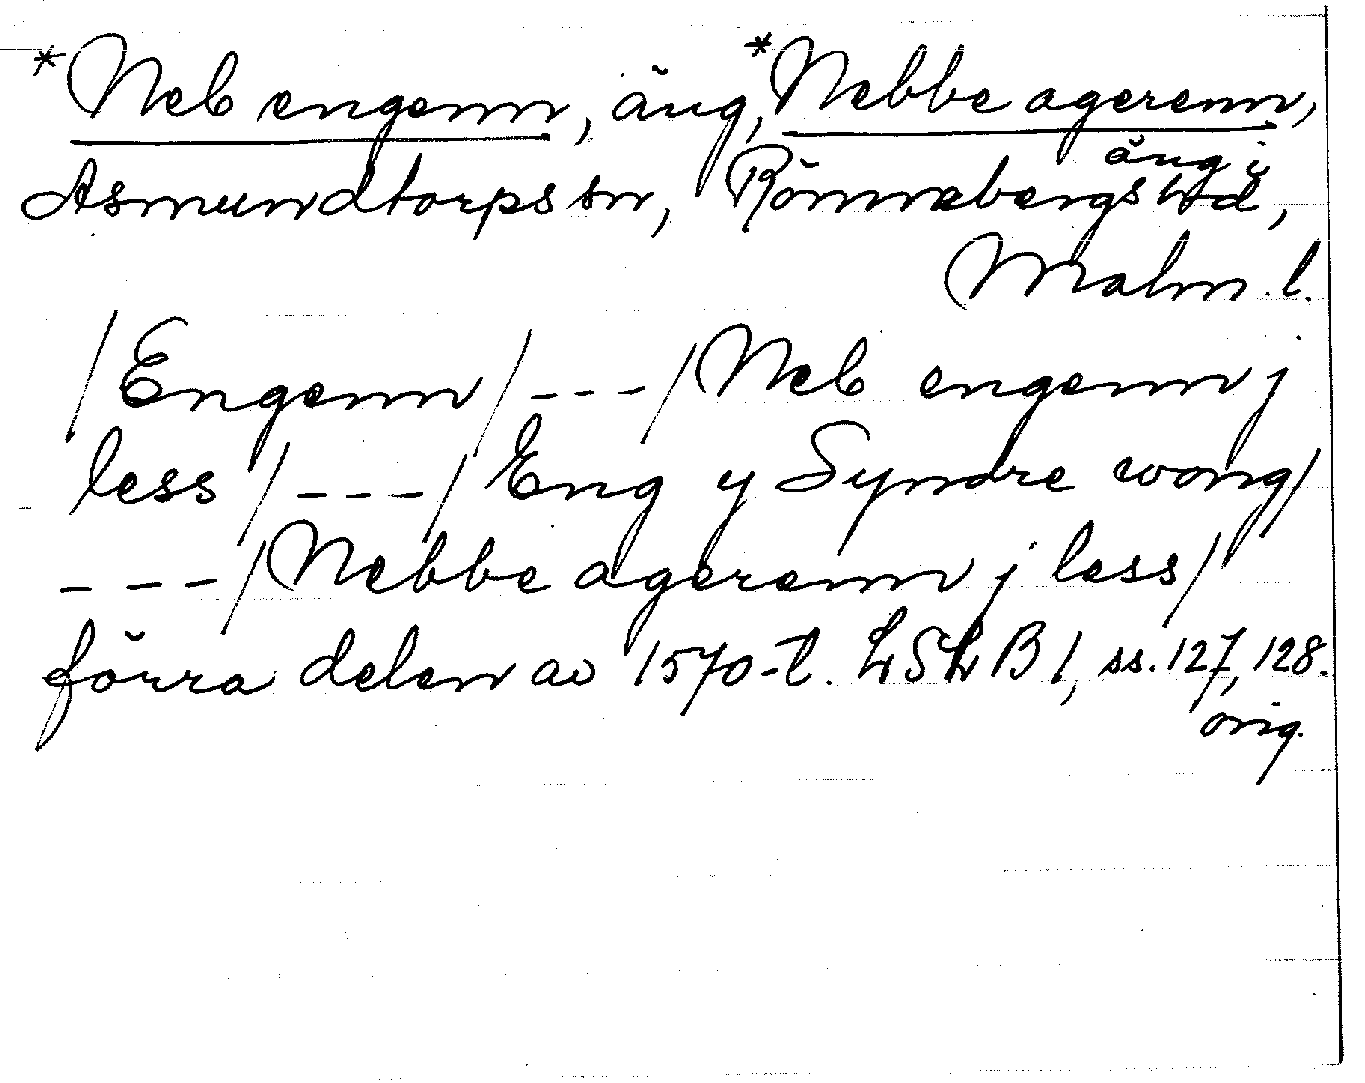 *Neb engenn, äng, *Nebbe agerenn,
äng i
Asmundtorps sn, Rönnebergs hd,
Malm. l.
/Engenn/ --- /Neb engenn j
less/ --- /Eng y Syndre wong/
--- /Nebbe agerenn j less/
förra delen av 1570-t. LSLB 1, ss. 127, 128.
orig.